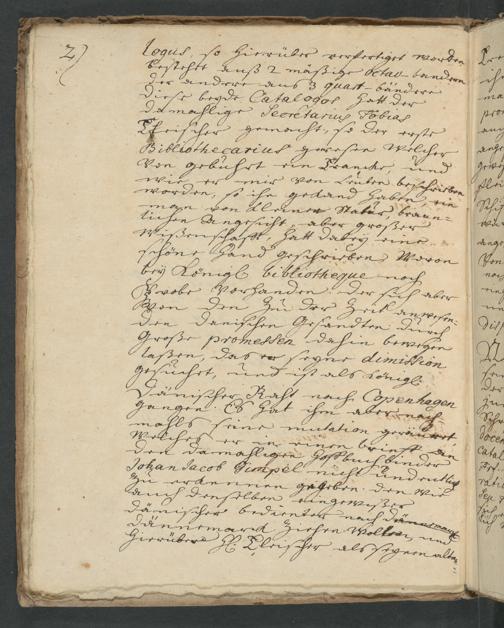 2)
logus, so hierüber verfertiget worden
bestehtt auß 2 mäßige octav bänden
der andere aus 3 quart-bänden
diese beyde Catalogos hatt der
damahlige Secretarius Tobias
Fleischer gemacht, so der erste
Bibliothecarius gewesen welcher
von gebuhrt ein Francke, und
wie er mir von Leuten beschrieben
worden, so ihn gekand haben, ein
man von kleiner Statur, braun-
lichen Angesicht, aber großer
Wißenschafft, hatt dabey eine
schöne hand geschrieben, wovon
bey Königl. bibliotheque noch
Probe vorhanden, der sich aber
von den zu der Zeit anwesen-
den dänischen Gesandten durch
große promessen dahin bewegen
laßen, das er seyne dimission
gesuchet, und ist als Königl.
dänischer Raht nach Copenhagen
gangen. Es hat ihm aber nach
mahls seine mutation gereüet
welches er in einen brieff an
den damahligen hoffbuchbinder
Johan Jacob nicht undeutlich
zu erkennen gegeben, den wie
auch denselben ein gewißer
dänischer bedienter nach dännemarck
dännemarck ziehen wollen, und
hierüber H. Fleischer als seynen alten